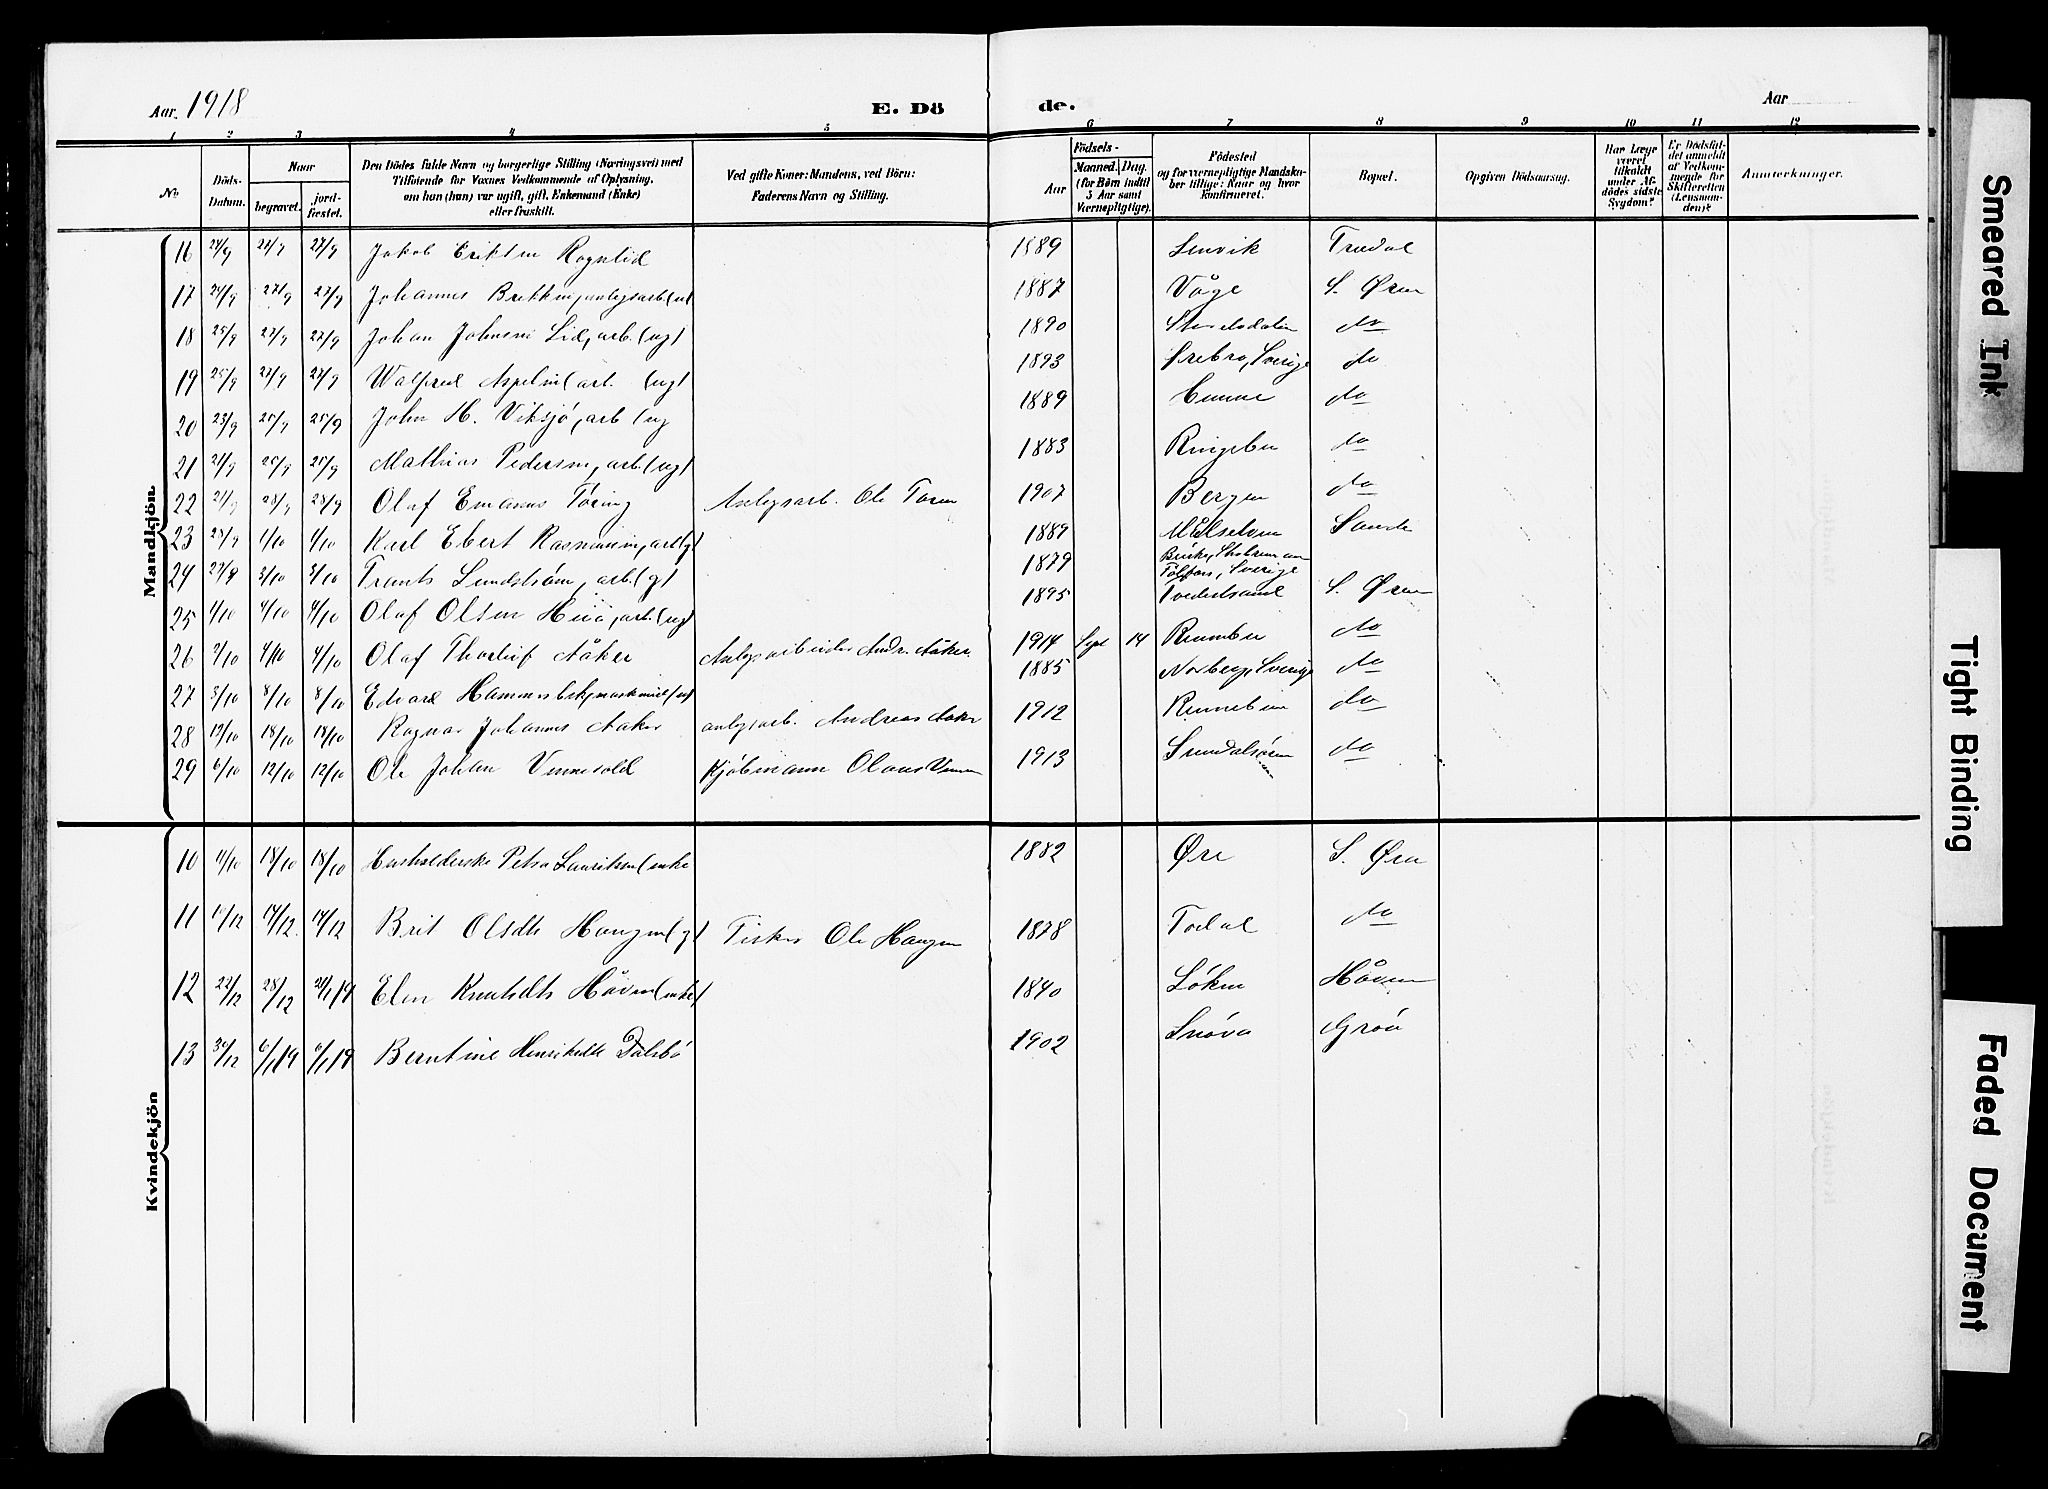 Aar. 1918 E. Dö de. Aar
1 2 3 4 5 6 7 8 9 10 11 12
No. Döds-Datum. Naar begravet. jord-fæstet. Den Dödes fulde Navn og borgerlige Stilling (Næringsvei) med Tilföiende for Voxnes Vedkommende af Oplysning, om han (hun) var ugift, gift, Enkemand (Enke) eller fraskilt. Ved gifte Koner: Mandens, ved Börn: Faderens Navn og Stilling. Födsels- Aar Maaned. Dag. (for Börn indtil 5 Aar samt Værnepligtige). Födested og for værnepligtige Mandskaber tillige: Naar og hvor konfirmeret. Bopæl. Opgiven Dödsaarsag. Har Læge været tilkaldt under Afdödes sidste Sygdom? Er Dödsfaldet anmeldt af Vedkommende for Skifteretten (Lensmanden)? Anmærkninger.
Mandkjön.
16 24/9 27/9 27/9 Jakob Eriksen Rognlid 1889 Lenvik Trædal
17 24/9 27/9 27/9 Johannes Brekken, anlegsarb. (ug) 1887 Våge S. Ören
18 25/9 27/9 27/9 Johan Johnsen Lid, arb. (ug) 1890 do
19 25/9 27/9 27/9 Walfred Aspelin, arb. (ug) 1893 Örebro, Sverige do
20 23/9 25/9 25/9 John H. Viksjö, arb (ug 1889 do
21 21/9 25/9 25/9 Mathias Pedersen, arb. (ug) 1883 Ringebu do
22 28/9 28/9 Olaf Emanus Töring Anlegsarb. Ole 1907 Bergen do
23 28/9 1/10 1/10 Karl Ebert Rasmussen, arb (g) 1889 Målselven Sande
24 27/9 3/10 3/10 Frants Lundström, arb. (g) 1879 Sverige
25 1/10 4/10 4/10 Olaf Olsen arb. (ug) 1895 S. Ören
26 2/10 4/10 4/10 Olaf Thorleif Aaker Anlegsarbeider Andr. Aaker 1914 Sept 14 Rennebu do
27 3/10 8/10 8/10 Edvard (ug) 1885 Norberg, Sverige do
28 12/10 18/10 18/10 Ragnar Johannes Aaker anlegsarb. Andreas Aaker 1912 Rennebu do
29 6/10 12/10 12/10 Ole Johan Vinnesold Kjöbmann Olaus 1913 Sundalsören do
Kvindekjön
10 11/10 18/10 18/10 Husholderske Petra Lauritsen (enke 1882 Öre S. Ören
11 14/12 14/12 Brit Olsdt. Haugen (g) Fisker Ole Haugen 1878 Todal do
12 22/12 28/12 Elen Knutsdt. Håven (enke) 1840 Löken Håven
13 30/12 6/1 19 6/1 19 Berntine Henriksdt. Dalsbö 1902 Snåsa Gröa
Smeared Ink
Tight Binding
Faded Document